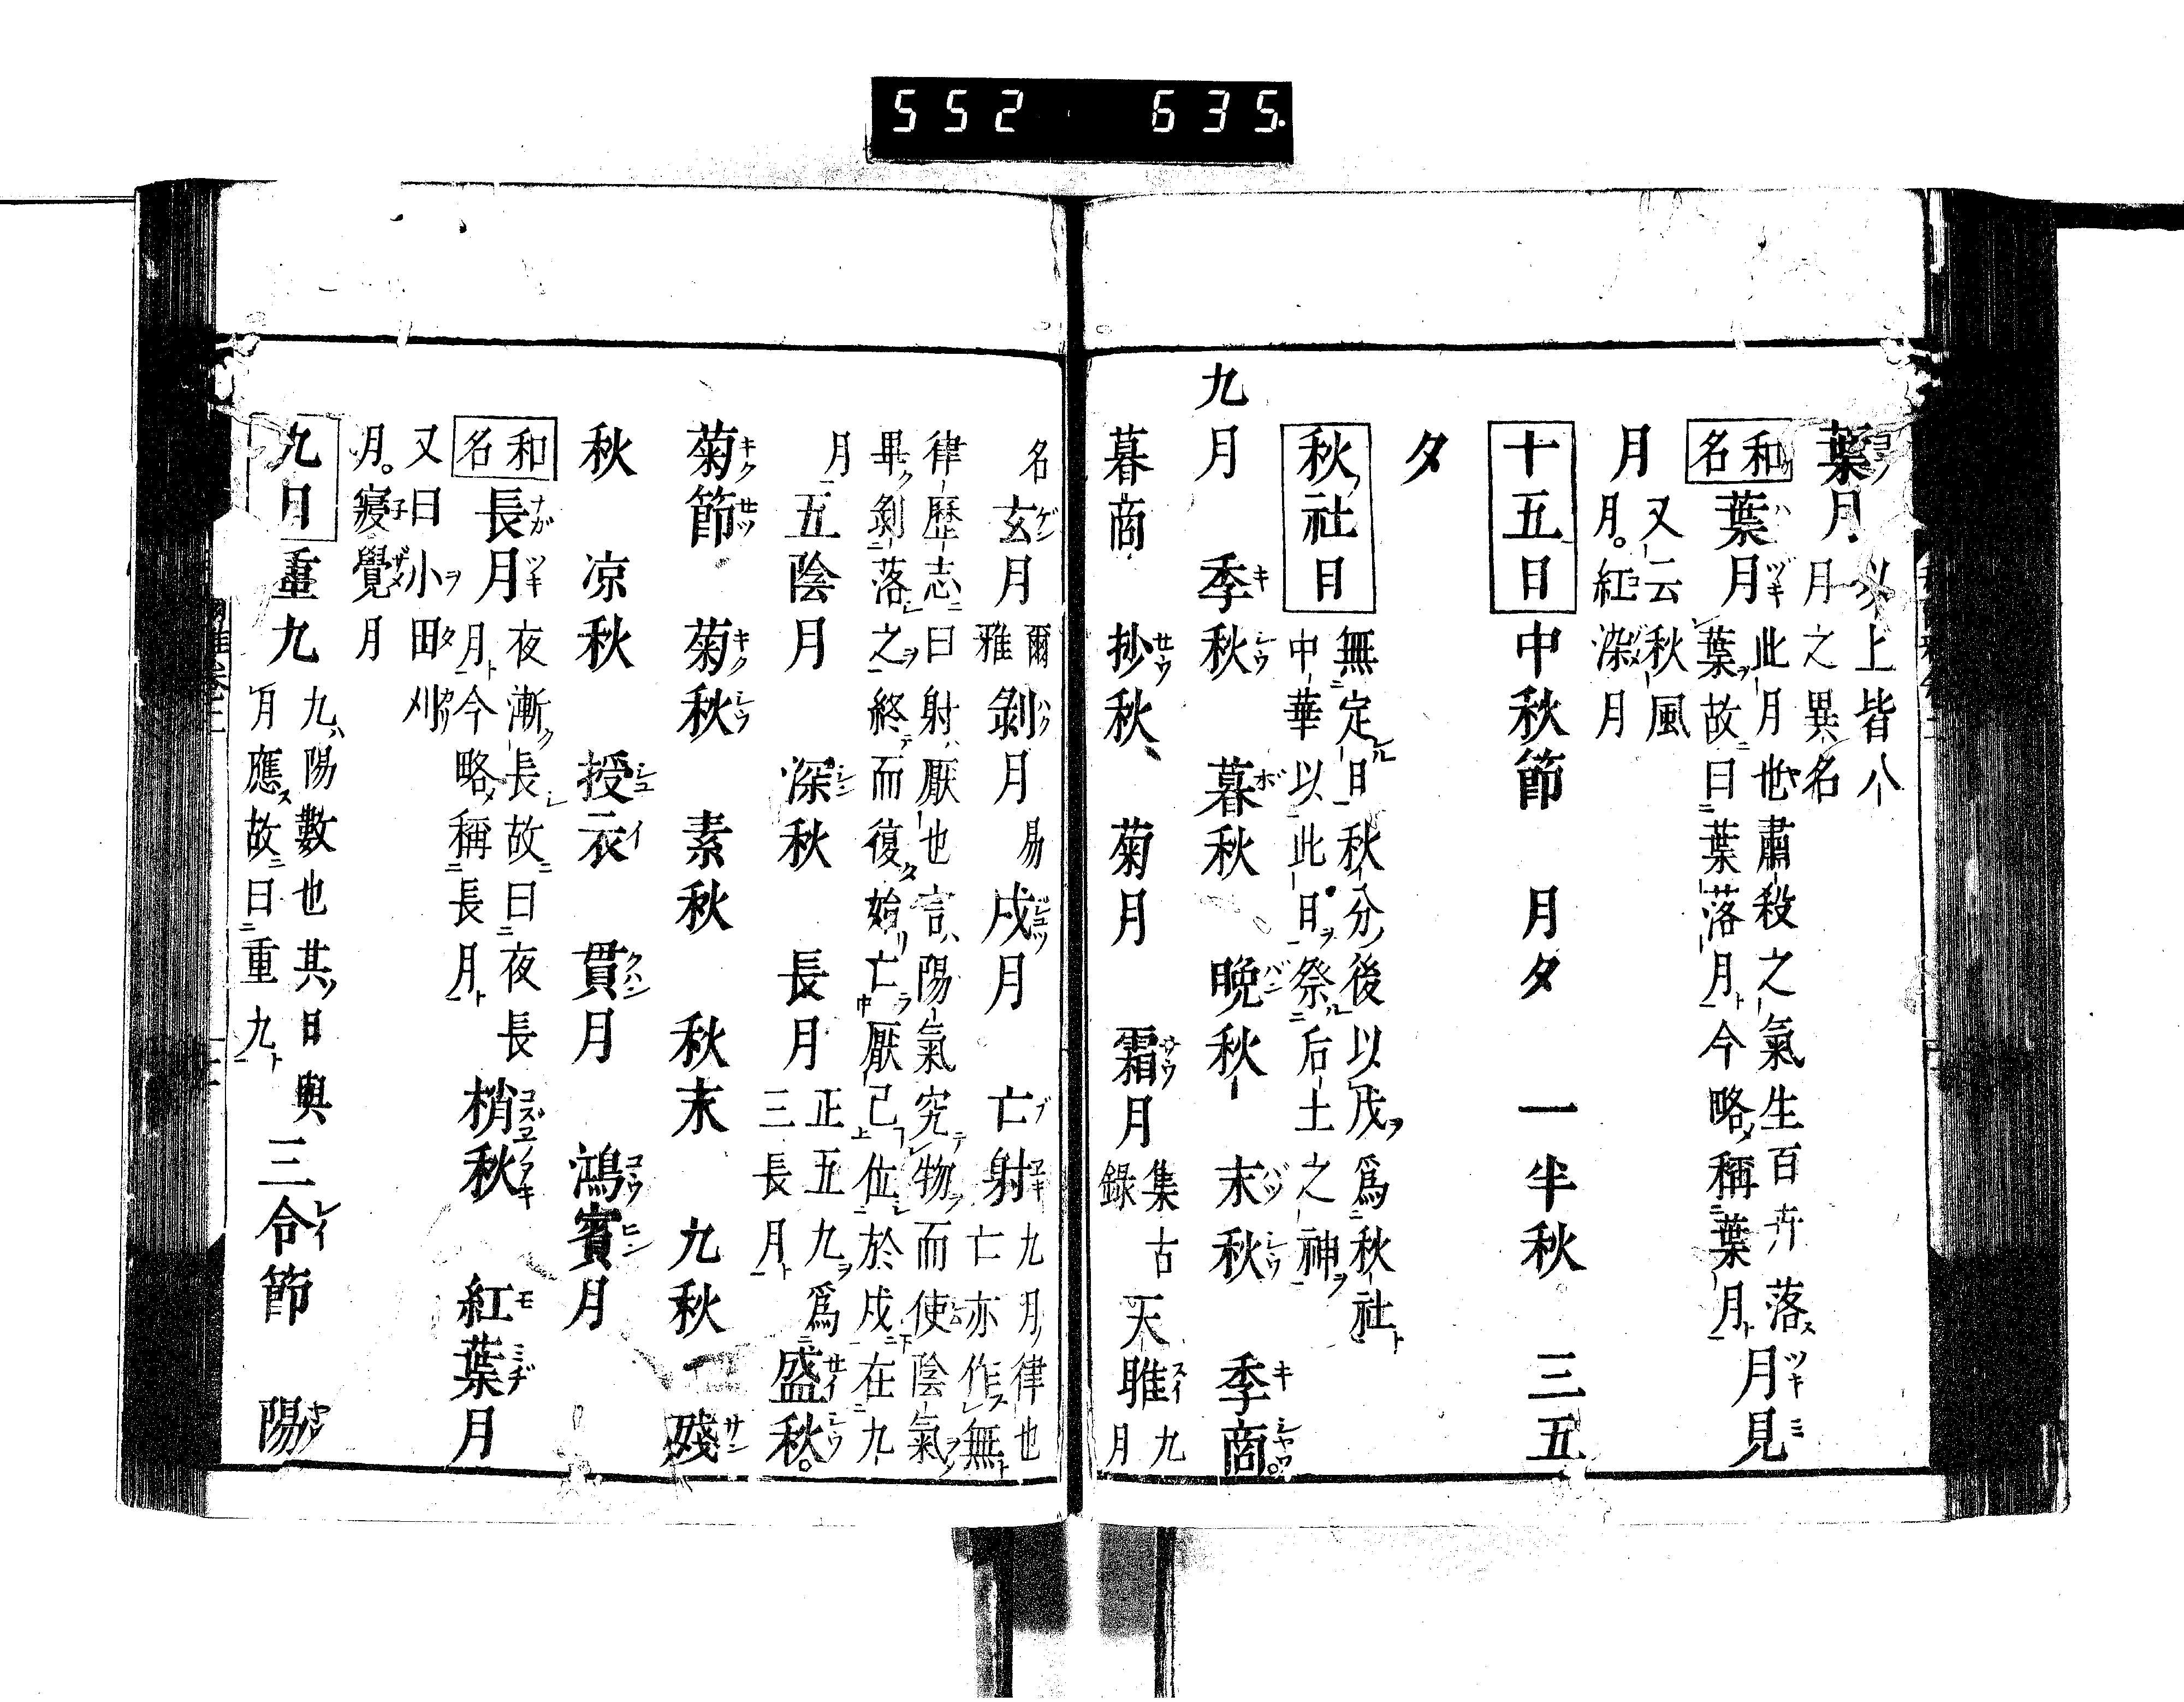 552 635
葉月以上皆八
月之異名
和名葉月此月也肅殺之氣生百卉落
葉故曰葉落月今略稱葉月月見
月又云秋風
月紅染月
十五日中秋節 月夕 一半秋 三五
夕
秋社日無定日秋分後以戊爲秋社
中華以此日祭后土之神
九月 季秋 暮秋 晩秋 末秋 季商
暮商 抄秋 菊月 霜月集古天睢九
錄月
名玄月爾剝月易戌月 亡射九月律也
雅亡亦作無
律歷志曰射厭也言陽氣究物而使陰氣
畢剝落之終而復始亡厭已位於戌在九
月五陰月 深秋 長月正五九爲盛秋
三長月
菊節 菊秋 素秋 秋末 九秋 殘
秋 凉秋 授衣 貫月 鴻賓月
和名長月夜漸長故曰夜長
月今略稱長月梢秋 紅葉月
又曰小田刈
月寢覺月
九日重九九陽數也其日與
月應故曰重九三令節 陽